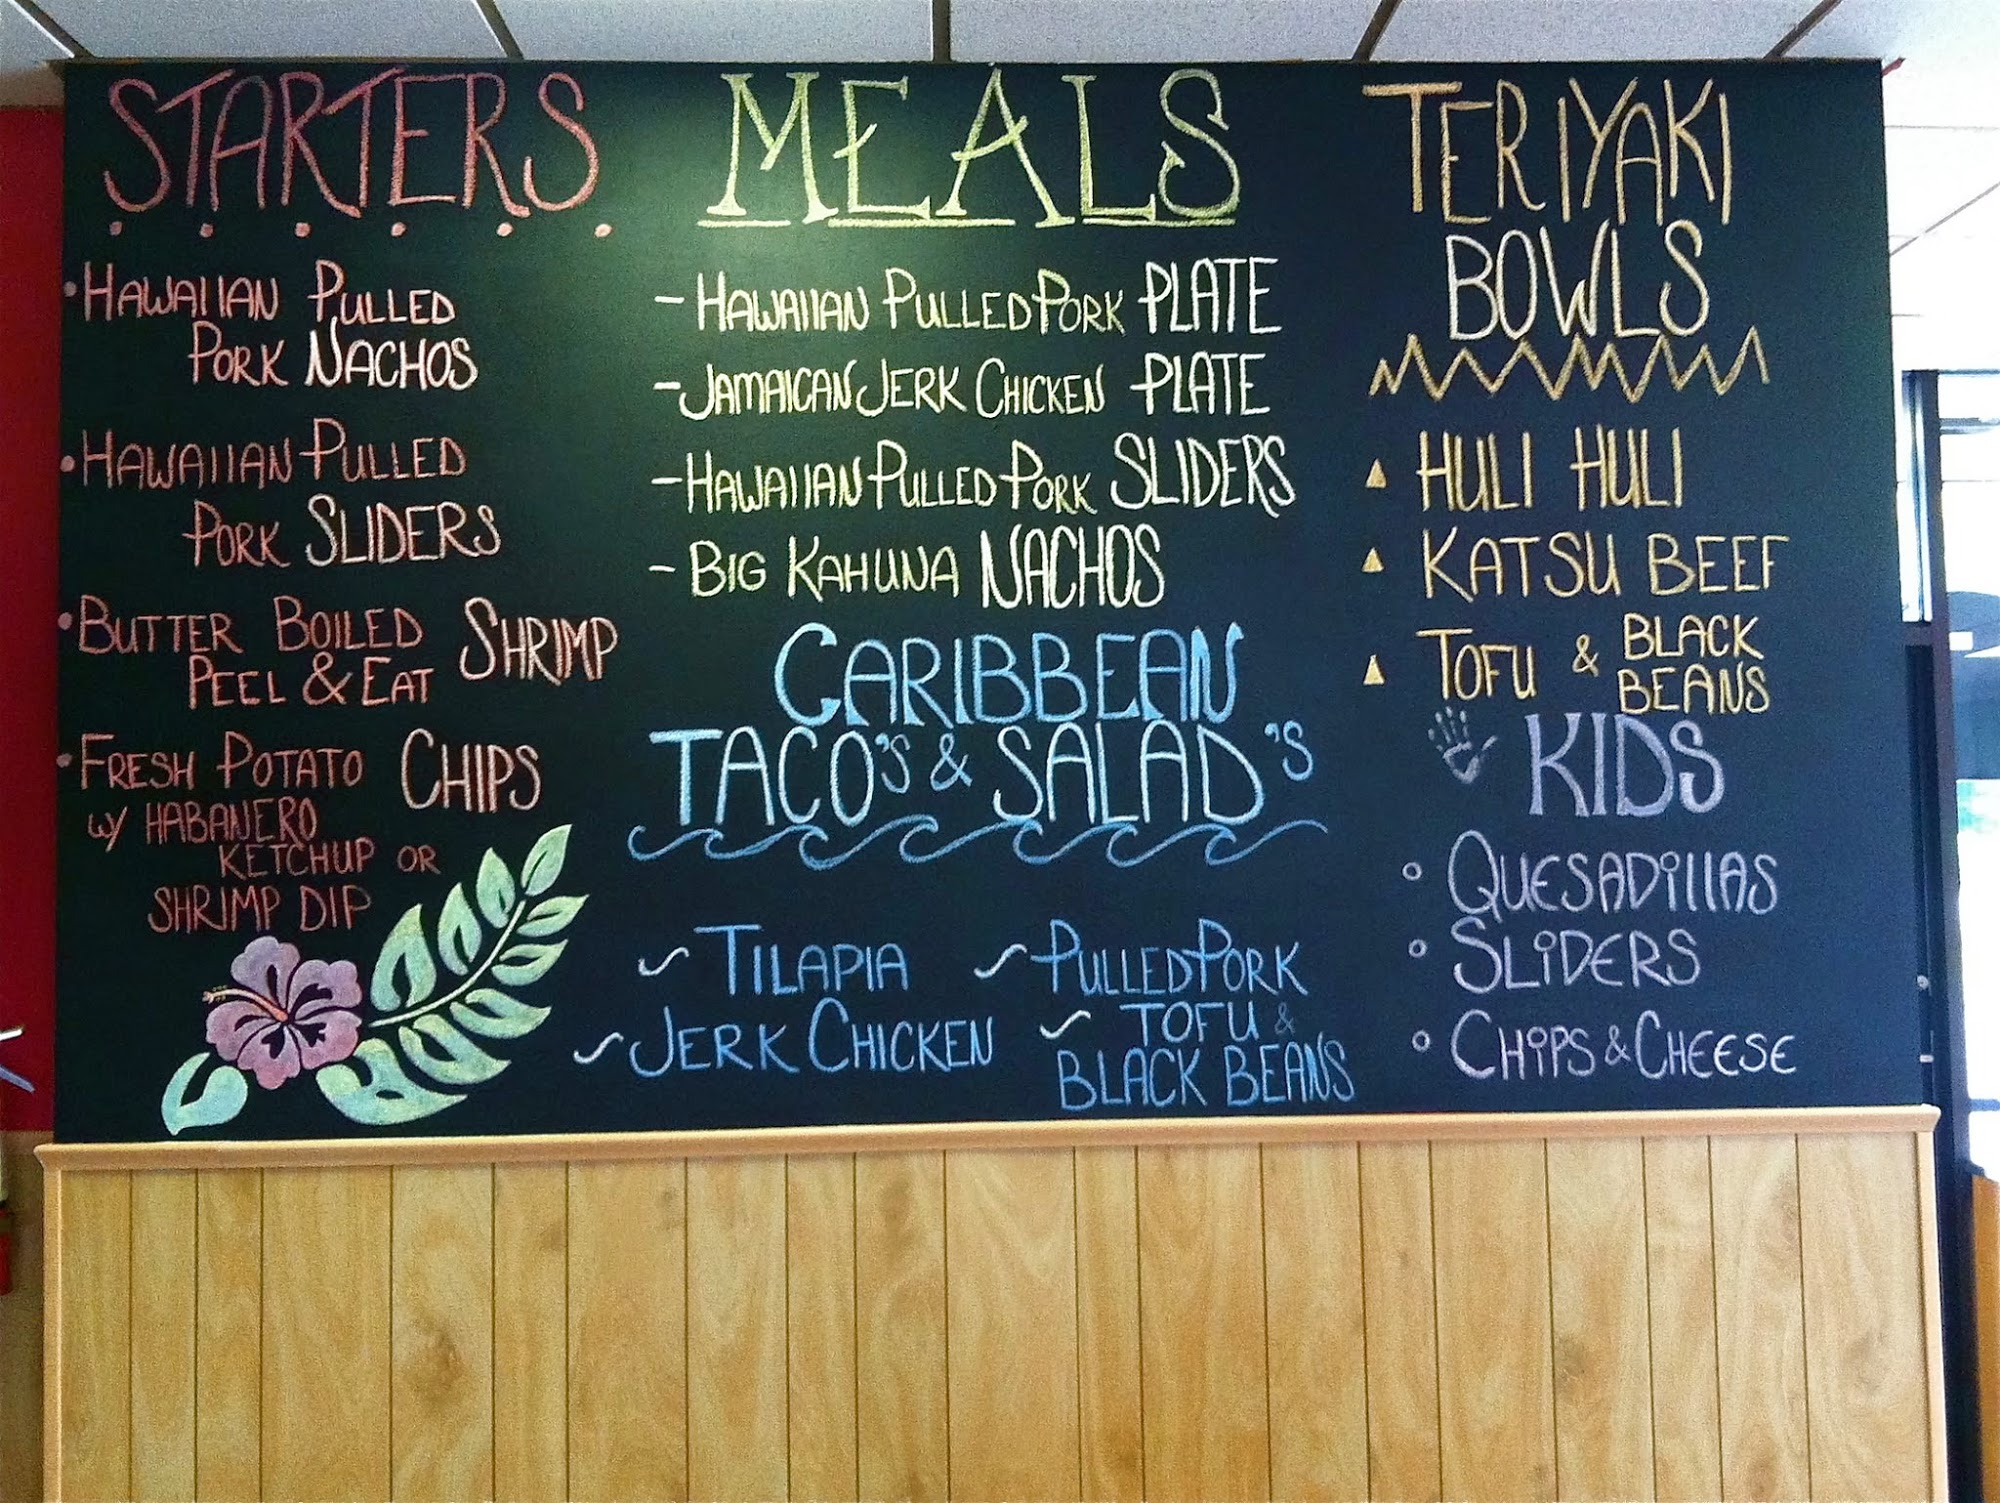 STARTERS
• HAWAIIAN PULLED
PORK NACHOS
• HAWAIIAN PULLED
PORK SLIDERS
• BUTTER BOILED SHRIMP
PEEL & EAT
• FRESH POTATO CHIPS
W/ HABANERO
KETCHUP OR
SHRIMP DIP
MEALS
- HAWAIIAN PULLED PORK PLATE
- JAMAICAN JERK CHICKEN PLATE
- HAWAIIAN PULLED PORK SLIDERS
- BIG KAHUNA NACHOS
CARIBBEAN
TACO'S & SALAD'S
~ TILAPIA
~ JERK CHICKEN
~ PULLED PORK
~ TOFU &
BLACK BEANS
TERIYAKI
BOWLS
▲ HULI HULI
▲ KATSU BEEF
▲ TOFU & BLACK
BEANS
KIDS
° QUESADILLAS
° SLIDERS
° CHIPS & CHEESE